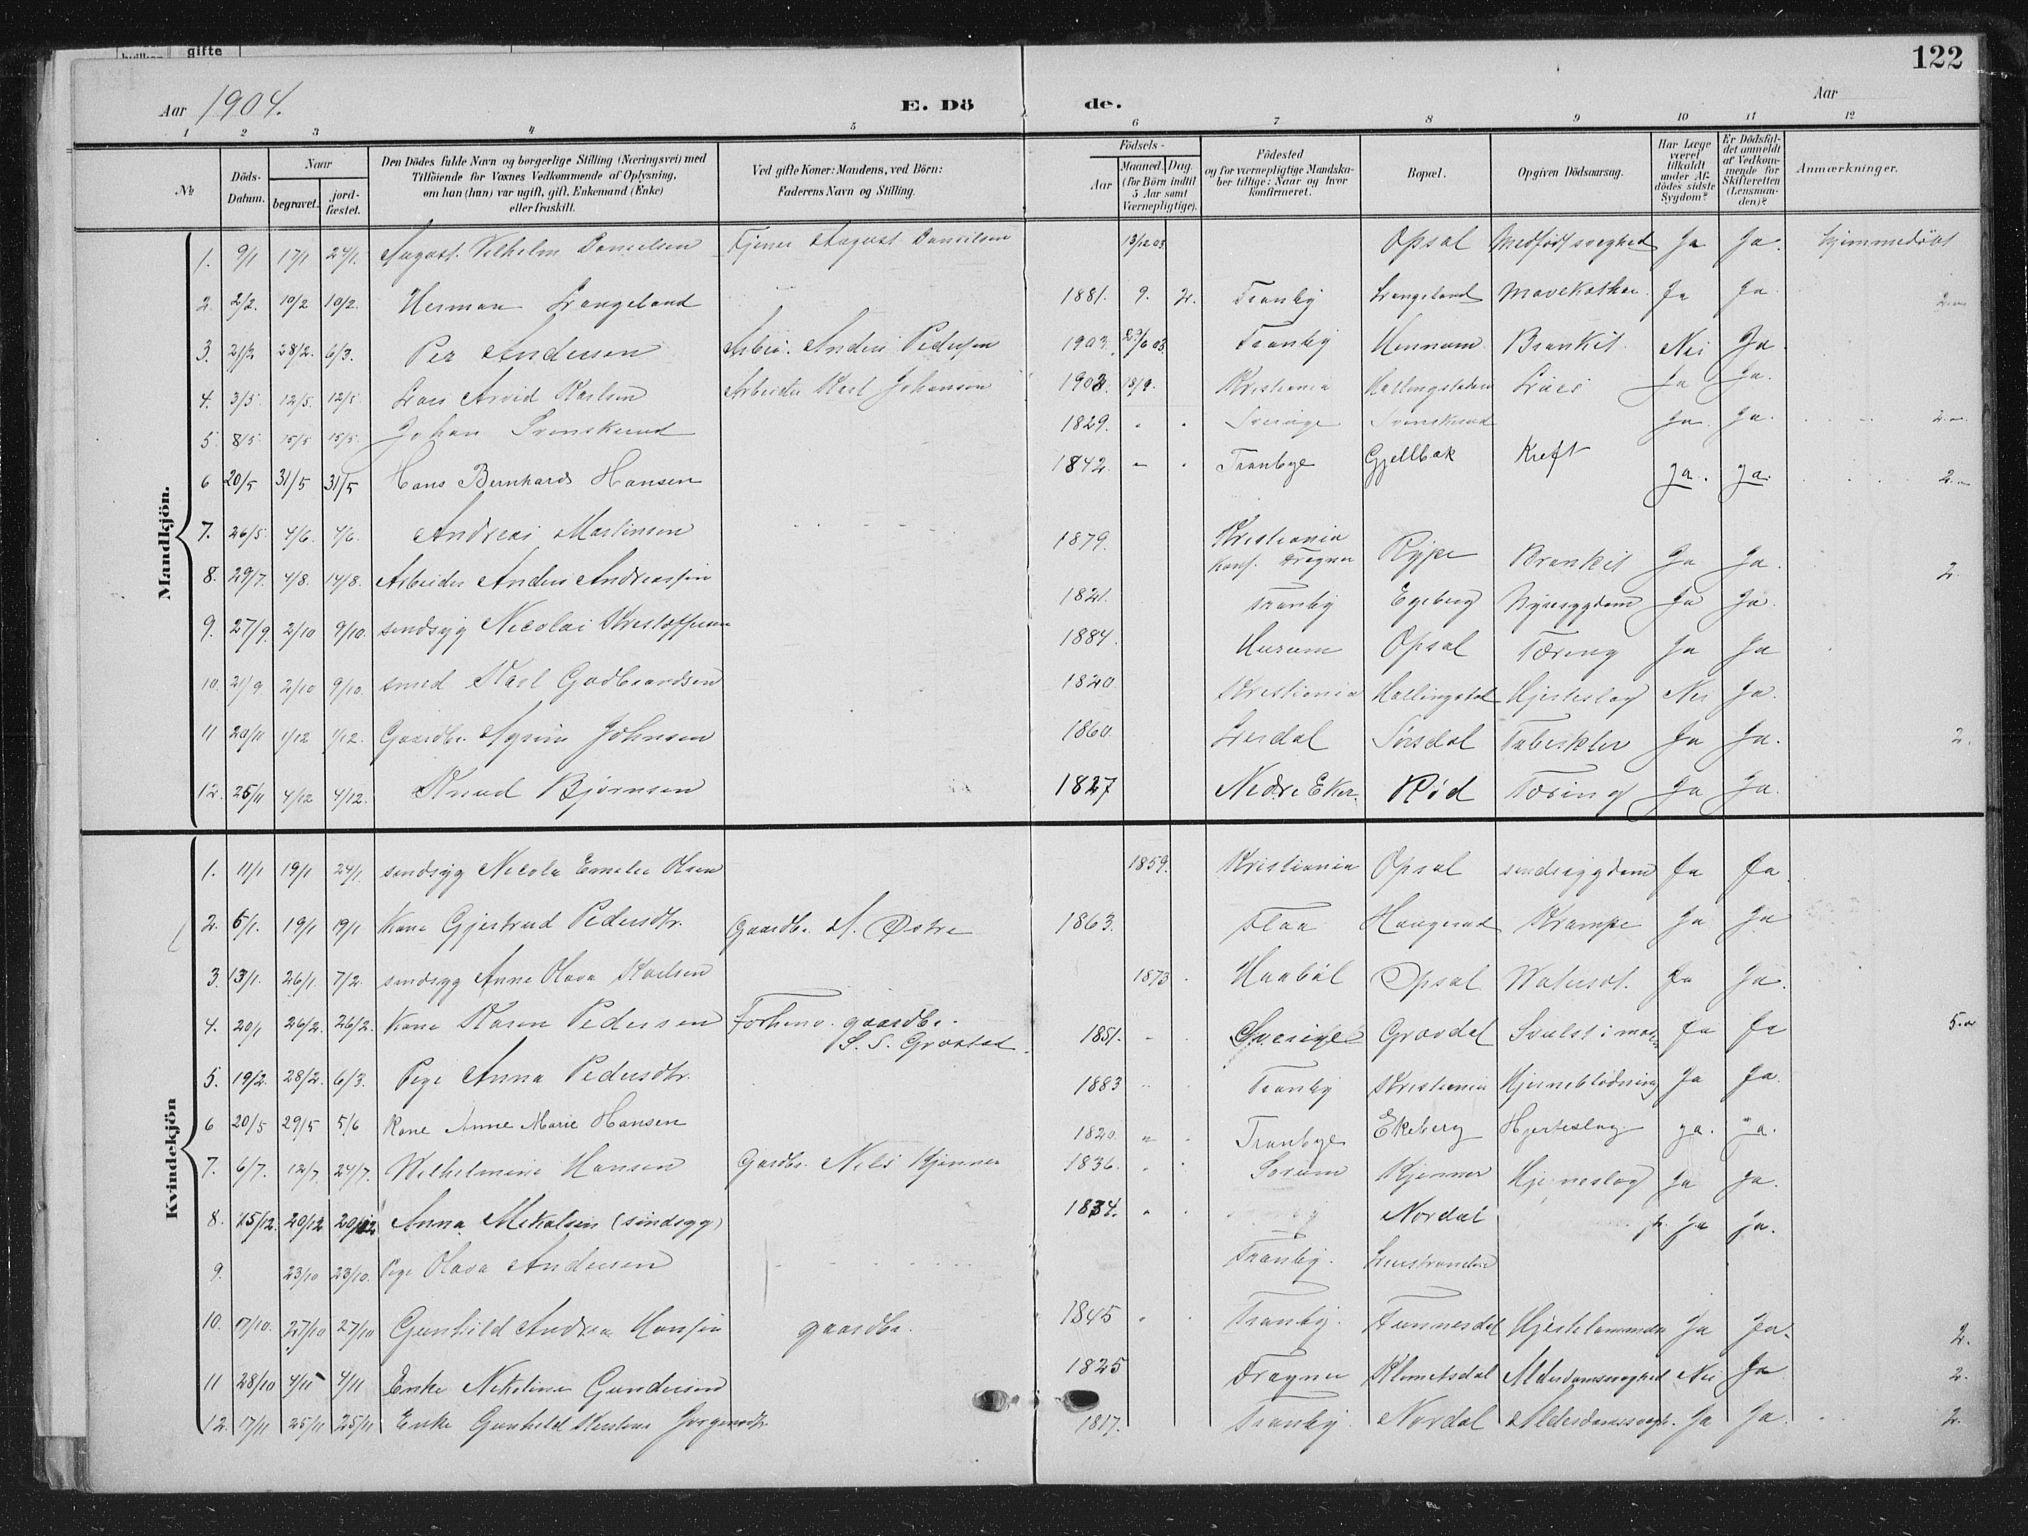 gifte
122
Aar 1904.
E. Dö de.
Aar
1 2 3 4 5 6 7 8 9 10 11 12
No
Döds-Datum.
Naar
begravet.
jord-fæstet.
Den Dödes fulde Navn og borgerlige Stilling (Næringsvei) med
Tilföiende for Voxnes Vedkommende af Oplysning,
om han (hun) var ugift, gift, Enkemand (Enke)
eller fraskilt.
Ved gifte Koner: Mandens, ved Börn:
Faderens Navn og Stilling.
Födsels-
Aar
Maaned. Dag.
(for Börn indtil
5 Aar samt
Værnepligtige).
Födested
og for værnepligtige Mandska-
ber tillige: Naar og hvor
konfirmeret.
Bopæl.
Opgiven Dödsaarsag.
Har Læge
været
tilkaldt
under Af-
dödes sidste
Sygdom?
Er Dödsfal-
det anmeldt
af Vedkom-
mende for
Skifteretten
(Lensman-
den)?
Anmærkninger.
Mandkjön.
1. 9/1 17/1 24/1. August Vilhelm Danielsen Tjener August Danielsen 13/12 03 Opsal Medfødt svaghed Ja Ja. hjemmedøbt
2. 2/2. 10/2 10/2. Herman Langeland 1881. 9. 2. Tranby Langeland Mavekatar Ja Ja 2.
3. 21/2 28/2. 6/3. Per Andersen Arbei. Anders Pedersen 1903. 23/6 03 Tranby Hennum Bronkit. Nei Ja.
4. 3/5. 12/5. 12/5 Lars Arvid Karlsen Arbeider Karl Johansen 1903. 15/9. Kristiania Ja Ja.
5. 8/5 15/5 15/5. Johan Svenskerud 1829. Sverige Svenskerud Ja. Ja. 2.
6 20/5 31/5 31/5 Hans Bernhard Hansen 1842. Tranbye Gjellbæk Kræft Ja. Ja. 2.
7. 26/5. 4/6. 4/6. Andreas Martinsen 1879. Kristiania Konf. Frogner Rype Bronkit Ja Ja.
8. 29/7. 4/8. 14/8. Arbeider Anders Andreassen 1821. Tranby Egeberg Nyresygdom Ja Ja. 2.
9. 27/9. 2/10 9/10. sindsyg Nicolai Kristoffersen 1884. Hurum Opsal Tæring Ja Ja
10. 21/9 2/10 9/10. smed Karl Gudbrandsen 1820 Kristiania Hallingstad Hjerteslag Nei Ja.
11 20/11 1/12 1/12. Gaardbr. Johnsen 1860. Lierdal Sørsdal Tuberkler Ja Ja. 2.
12. 25/11 4/12 4/12. Knud Bjørnsen 1827 Nedre Eker. Rød Tæring Ja Ja.
Kvindekjön
1. 11/1 19/1 24/1. sindsyg Nicola Emelie Olsen 1859. Kristiania Opsal sindssygdom Ja Ja.
2. 5/1. 19/1 19/1 Kone Gjertrud Pedersdtr. Gaardbr. A. Østre 1863. Flaa Haugerud Krampe Ja Ja
3. 13/1. 26/1. 7/2. sindsyg Anne Olava Karlsen 1873 Haabøl Opsal Ja Ja.
4. 20/1 26/2. 26/2. Kone Karen Pedersen Forhenv. gaardbr.
S. S. Grøstad. 1851. Sverige Gravdal Svulst i Ja Ja 5.
5. 19/2. 28/2. 6/3. Pige Anna Pedersdtr. 1883 Tranby Kristiania Hjerneblødning Ja Ja.
6 20/5 29/5 5/6 Kone Anne Marie Hansen 1820. Tranbye Ekeberg Hjerteslag. ja. ja.
7. 6/7. 12/7. 24/7. Wilhelmine Hansen Gardbr. Nils Kjenner 1836. Sørum Kjenner Hjerneslag Ja Ja.
8. 15/12. 20/12 20/12 Anna Mikalsen (sindsyg) 1834. Nordal Ja Ja.
9. 23/10 23/10. Pige Olava Andersen Tranby.
10. 17/10. 27/10 27/10 Gunhild Andrea Hansen gaardbr. 1845 Tranby. Tunnesdal Hjertelammelse Ja Ja. 2.
11 28/10 4/11 4/11 Enke Nikoline Gundersen 1825 Frogner Klemetsdal Alderdomssvaghed Nei Ja 2.
12. 17/11 25/11 25/11 Enke Gunhild Kirstine Jørgensdtr. 1817. Tranby. Nordal Alderdomssvagh. Ja Ja. 2.